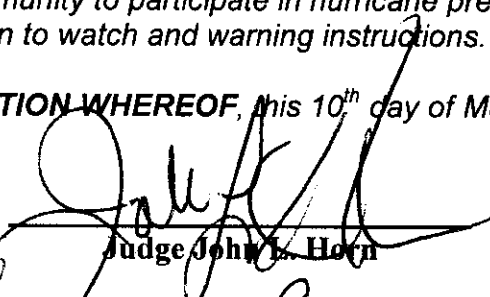 munity to participate in hurricane pre
n to watch and warning instructions.
TION WHEREOF, this 10th day of M
Judge John L. Horn